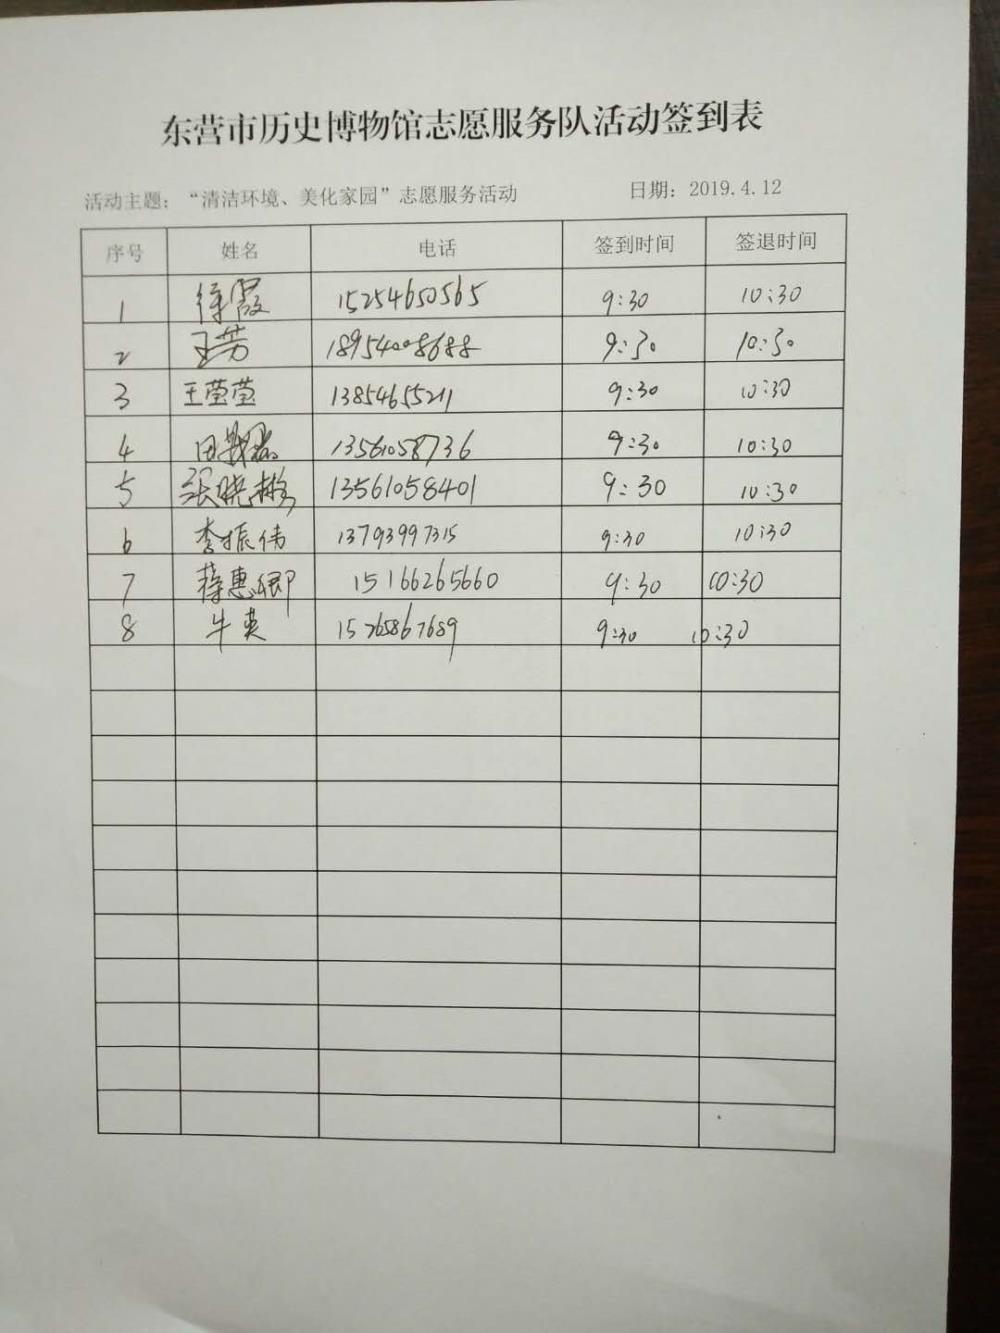 东营市历史博物馆志愿服务队活动签到表
活动主题：“清洁环境、美化家园”志愿服务活动 日期：2019.4.12
序号 姓名 电话 签到时间 签退时间
1 徐霞 15254650565 9:30 10:30
2 王芳 18954008688 9:30 10:30
3 王莹莹 13854655211 9:30 10:30
4 田 13561058736 9:30 10:30
5 张晓 13561058401 9:30 10:30
6 李振伟 13793997315 9:30 10:30
7 蒋惠卿 15166265660 9:30 10:30
8 牛爽 15265867689 9:30 10:30